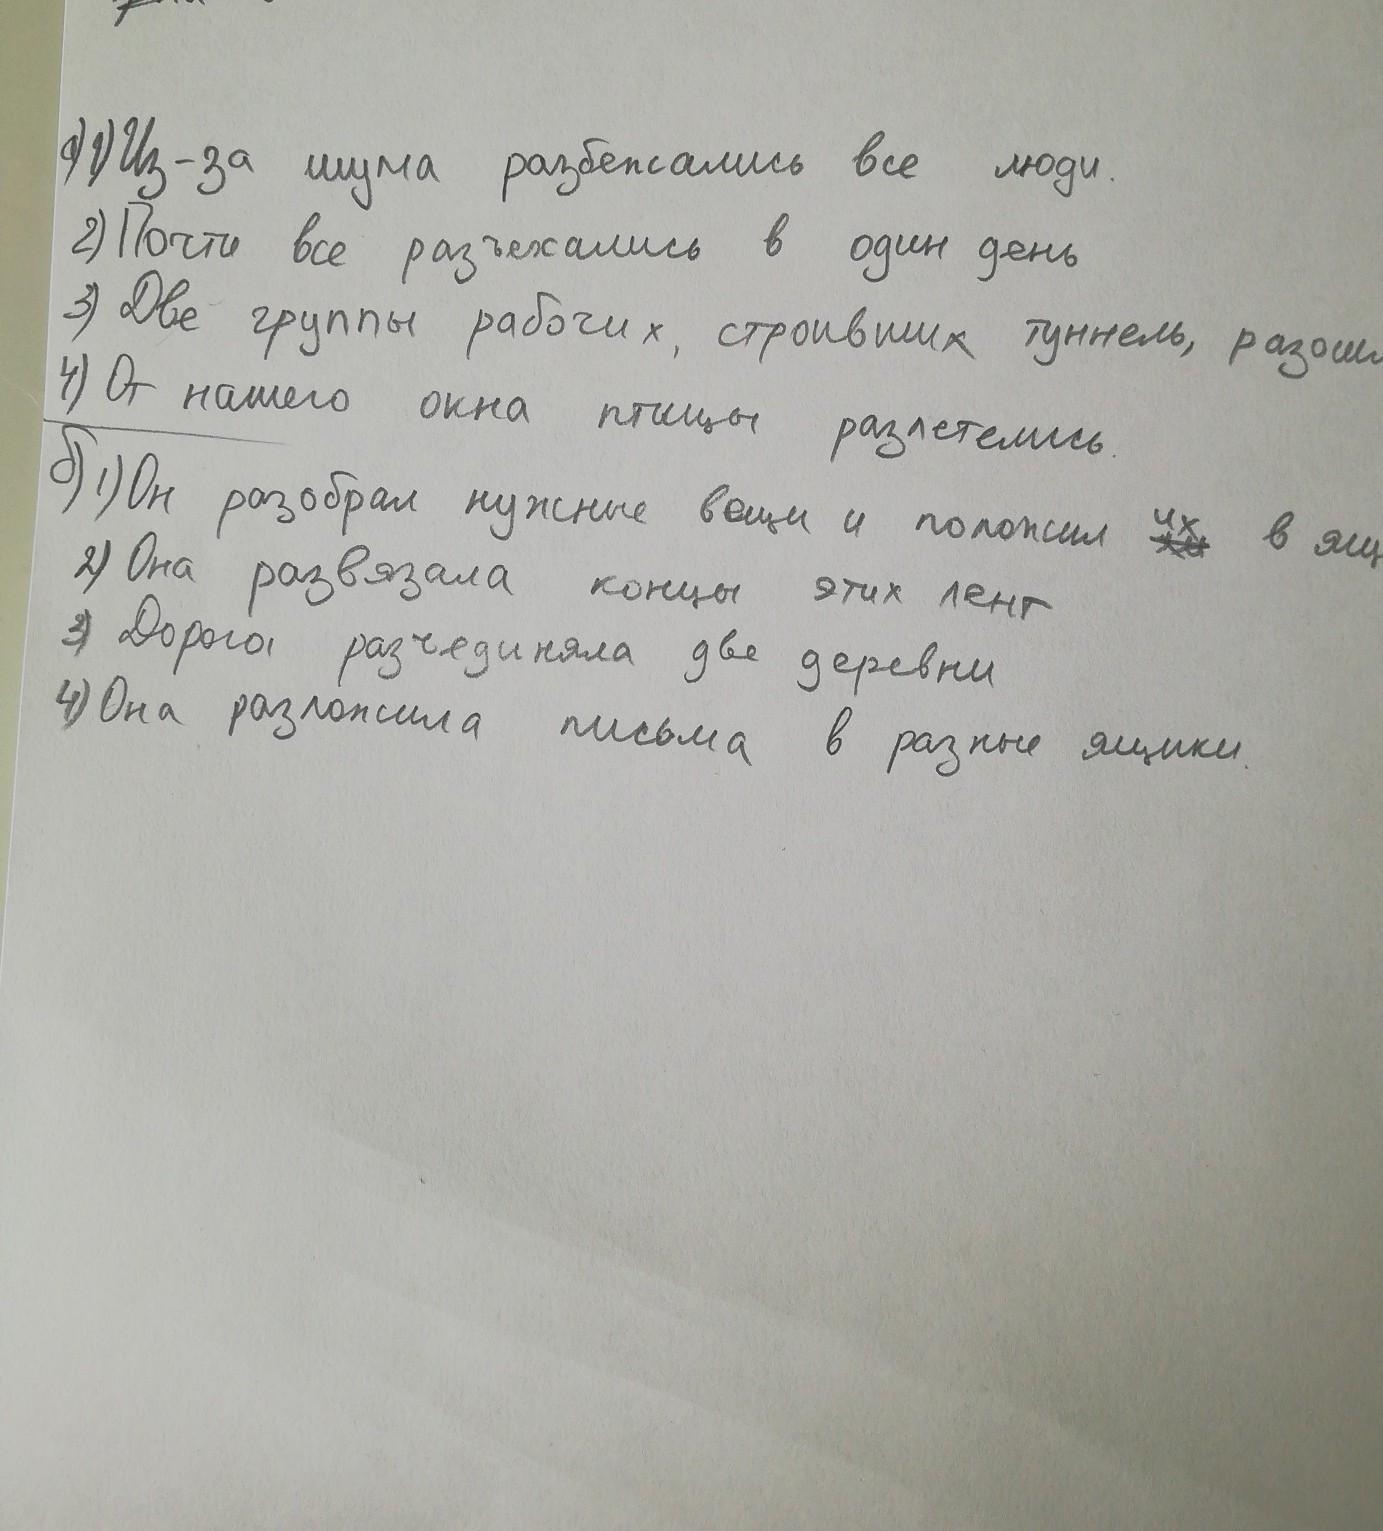 а) 1) Из-за шума разбежались все люди.
2) Почти все разъехались в один день
3) Две группы рабочих, строивших туннель,
4) От нашего окна птицы разлетелись.
б) 1) Он разобрал нужные вещи и положил их в
2) Она развязала концы этих лент
3) Дорога разъединяла две деревни
4) Она разложила письма в разные ящики.